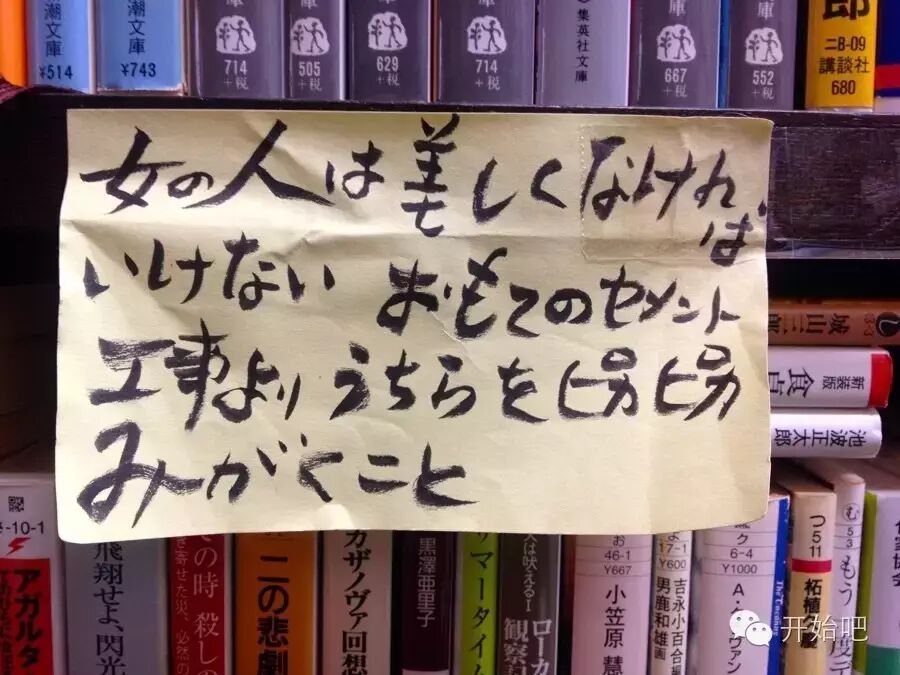 潮文庫
¥514
潮文庫
¥743
庫
714
+税
庫
505
+税
庫
629
+税
庫
714
+税
集英社文庫
庫
667
+税
庫
552
+税
郎
ニB-09
講談社
680
女の人は美しくなければ
いけない おもてのセメント
工事より うちらをピカピカ
みがくこと
城山三郎
新装版
食卓
池波正太郎
-10-1
アガルタ
飛翔せよ、閃光
の時 殺しの
二の悲劇
カザノヴァ回想
黒澤亜里子
サマータイム
人は吠える I
ローカ
観察
お
46-1
¥667
小笠原 慧
よ
17-1
¥600
吉永小百合
男鹿和雄 画
ク
6-4
¥1000
A・
ヴァン
つ 5 11
柘植久慶
む 5 3
もう
開始吧